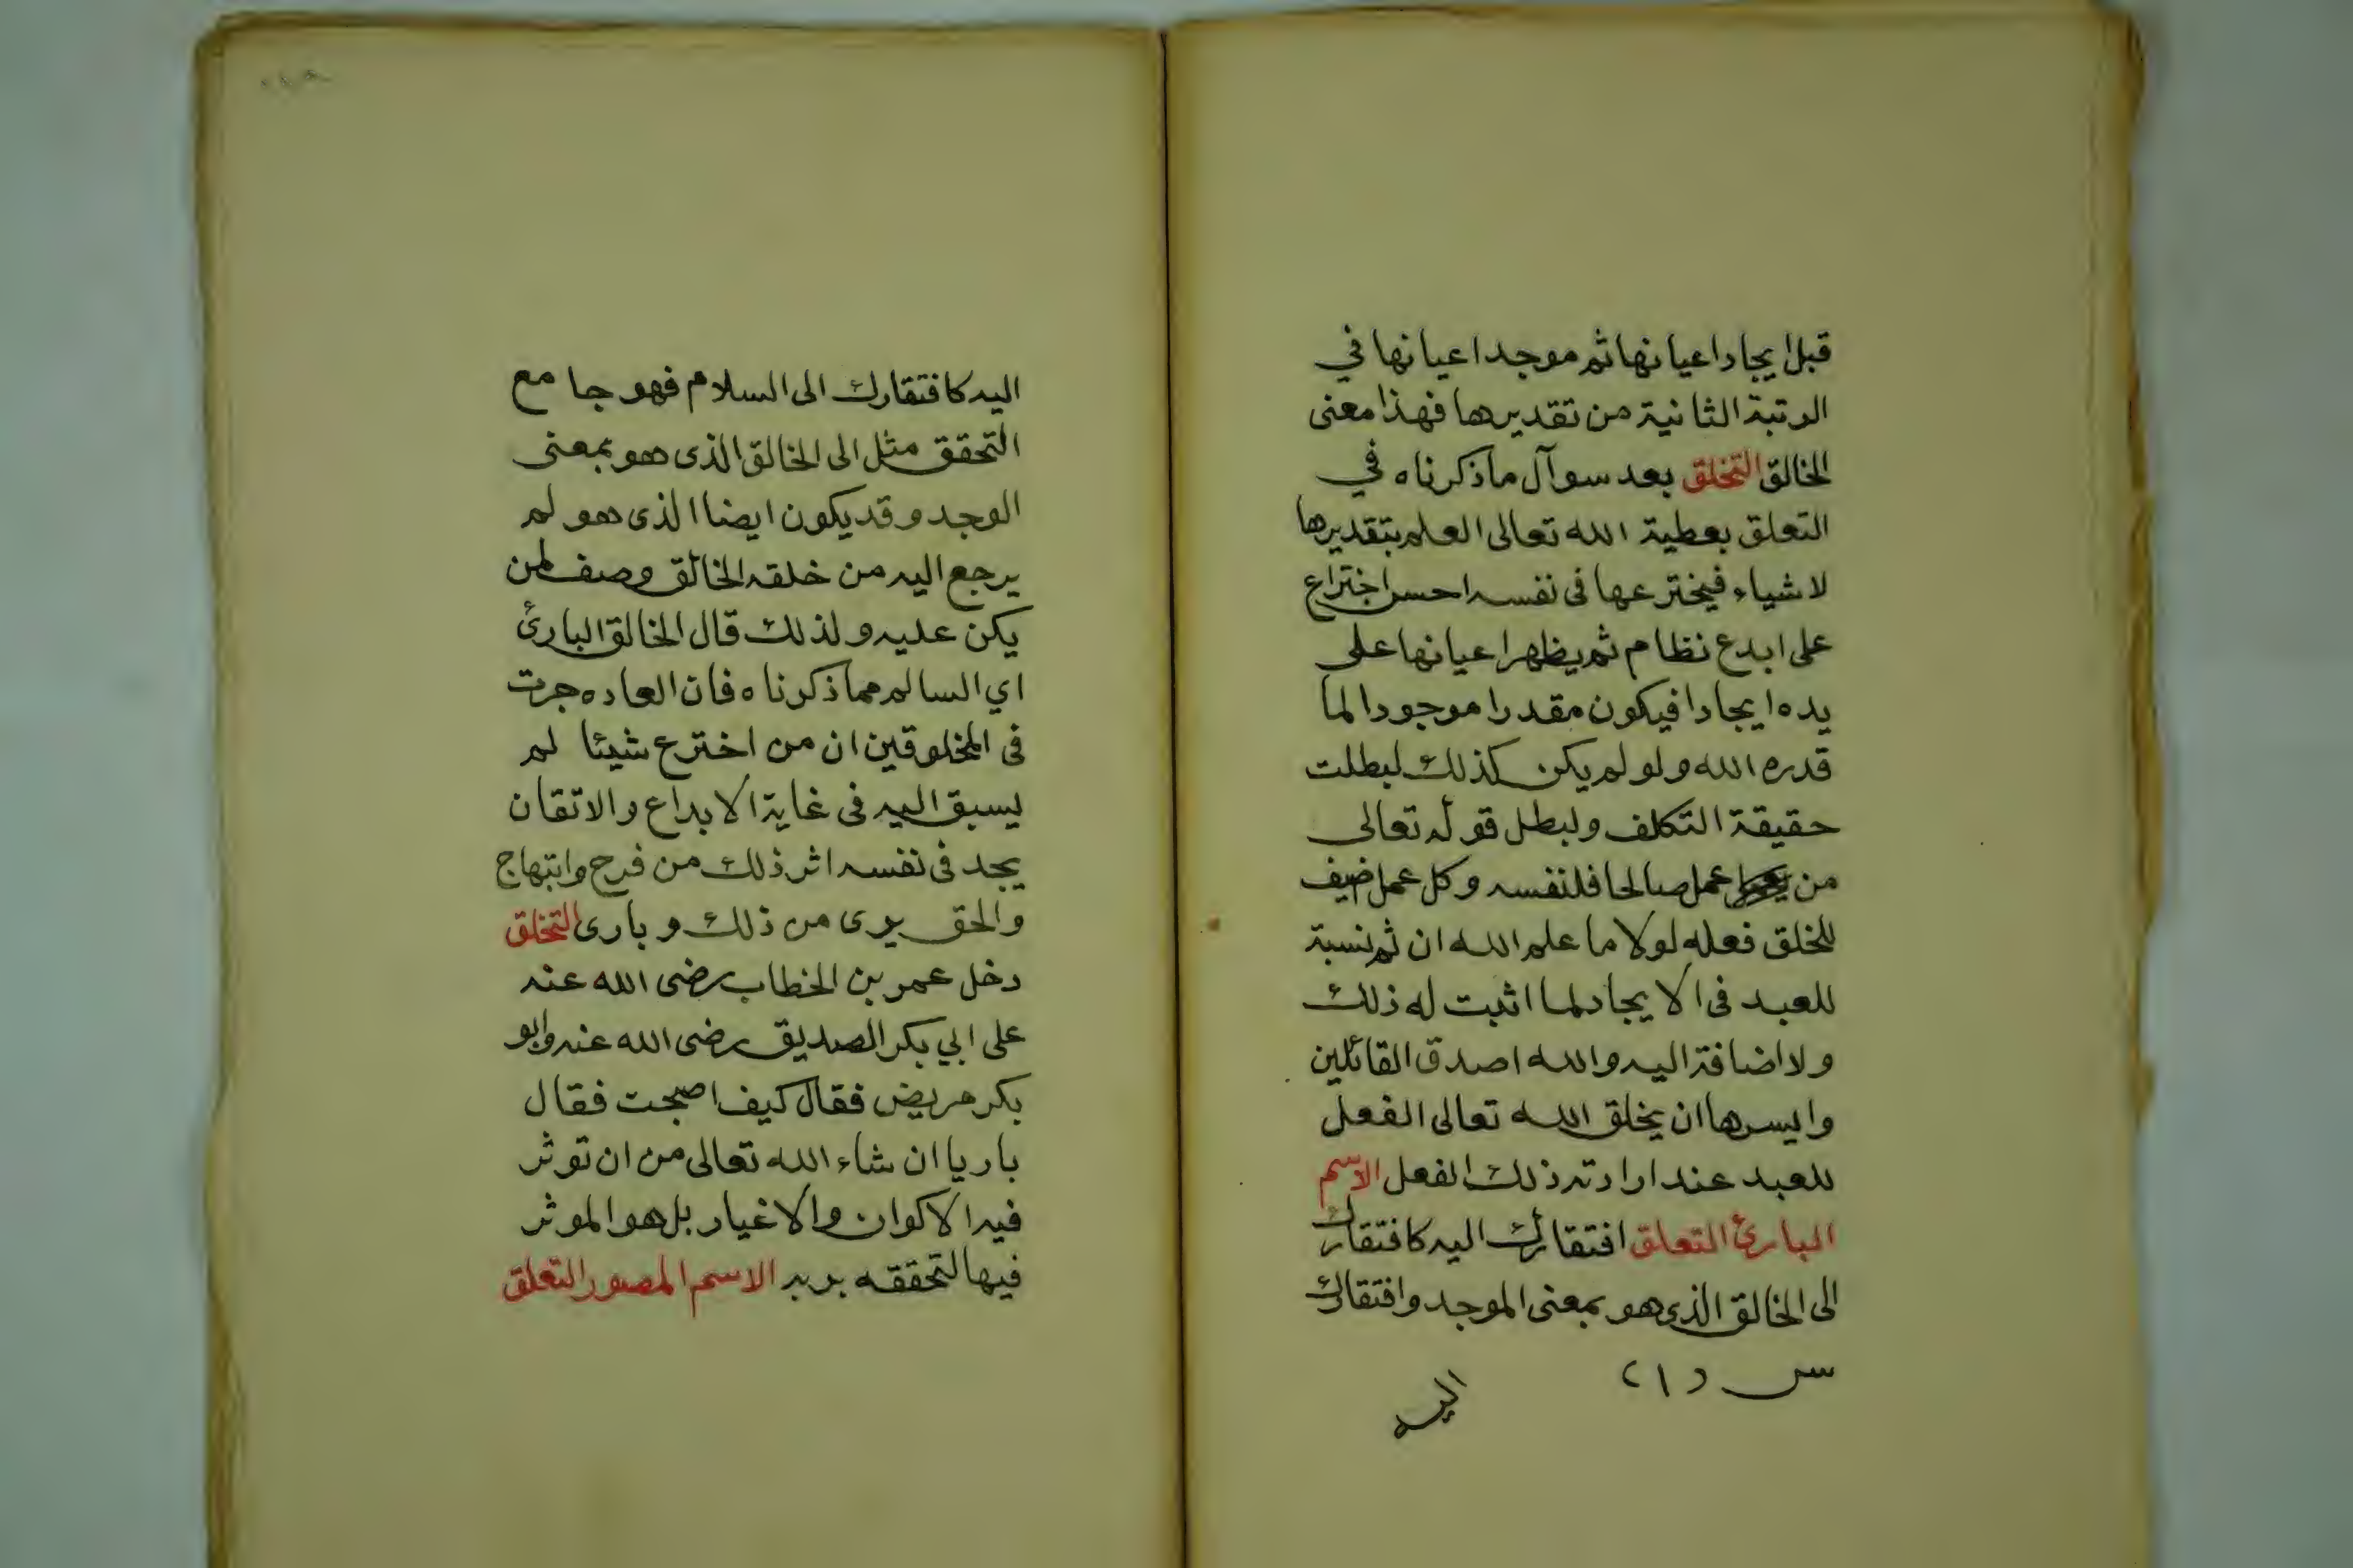 قبل ايجاد اعيانها ثم موجد اعيانها في
الرتبة الثانية من تقديرها فهذا معنى
الخالق التخلق بعد سوآل ما ذكرناه في
التعلق بعطية الله تعالى العلم بتقديرها
لاشياء فيخترعها فى نفسه احسن اختراع
على ابدع نظام ثم يظهر اعيانها على
يده ايجادا فيكون مقدرا موجودا لما
قدره الله ولو لم يكن كذلك لبطلت
حقيقة التكلف ولبطل قوله تعالى
من عمل صالحا فلنفسه وكل عمل اضيف
للخلق فعله لولا ما علم الله ان ثم نسبة
للعبد فى الايجاد لما اثبت له ذلك
ولا اضافة اليه والله اصدق القائلين
وايسرها ان يخلق الله تعالى الفعل
للعبد عند ارادته ذلك الفعل الاسم
البارئ التعلق افتقارك اليه كافتقارك
الى الخالق الذى هو بمعنى الموجد وافتقارك
اليه
اليه كافتقارك الى السلام فهو جامع
التحقق مثل الى الخالق الذى هو بمعنى
الوجد وقد يكون ايضا الذى هو لم
يرجع اليه من خلقه الخالق وصف لمن
يكن عليه ولذلك قال الخالق البارئ
اي السالم مما ذكرناه فان العاده جرت
فى المخلوقين ان من اخترع شيئا لم
يسبق اليه فى غاية الابداع والاتقان
يجد فى نفسه اثر ذلك من فرح وابتهاج
والحق برى من ذلك وبارى التخلق
دخل عمر بن الخطاب رضى الله عنه
على ابي بكر الصديق رضى الله عنه وابو
بكر مريض فقال كيف اصبحت فقال
باريا ان شاء الله تعالى من ان توثر
فيه الاكوان والاغيار بل هو الموثر
فيها لتحققه بربه الاسم المصور التعلق